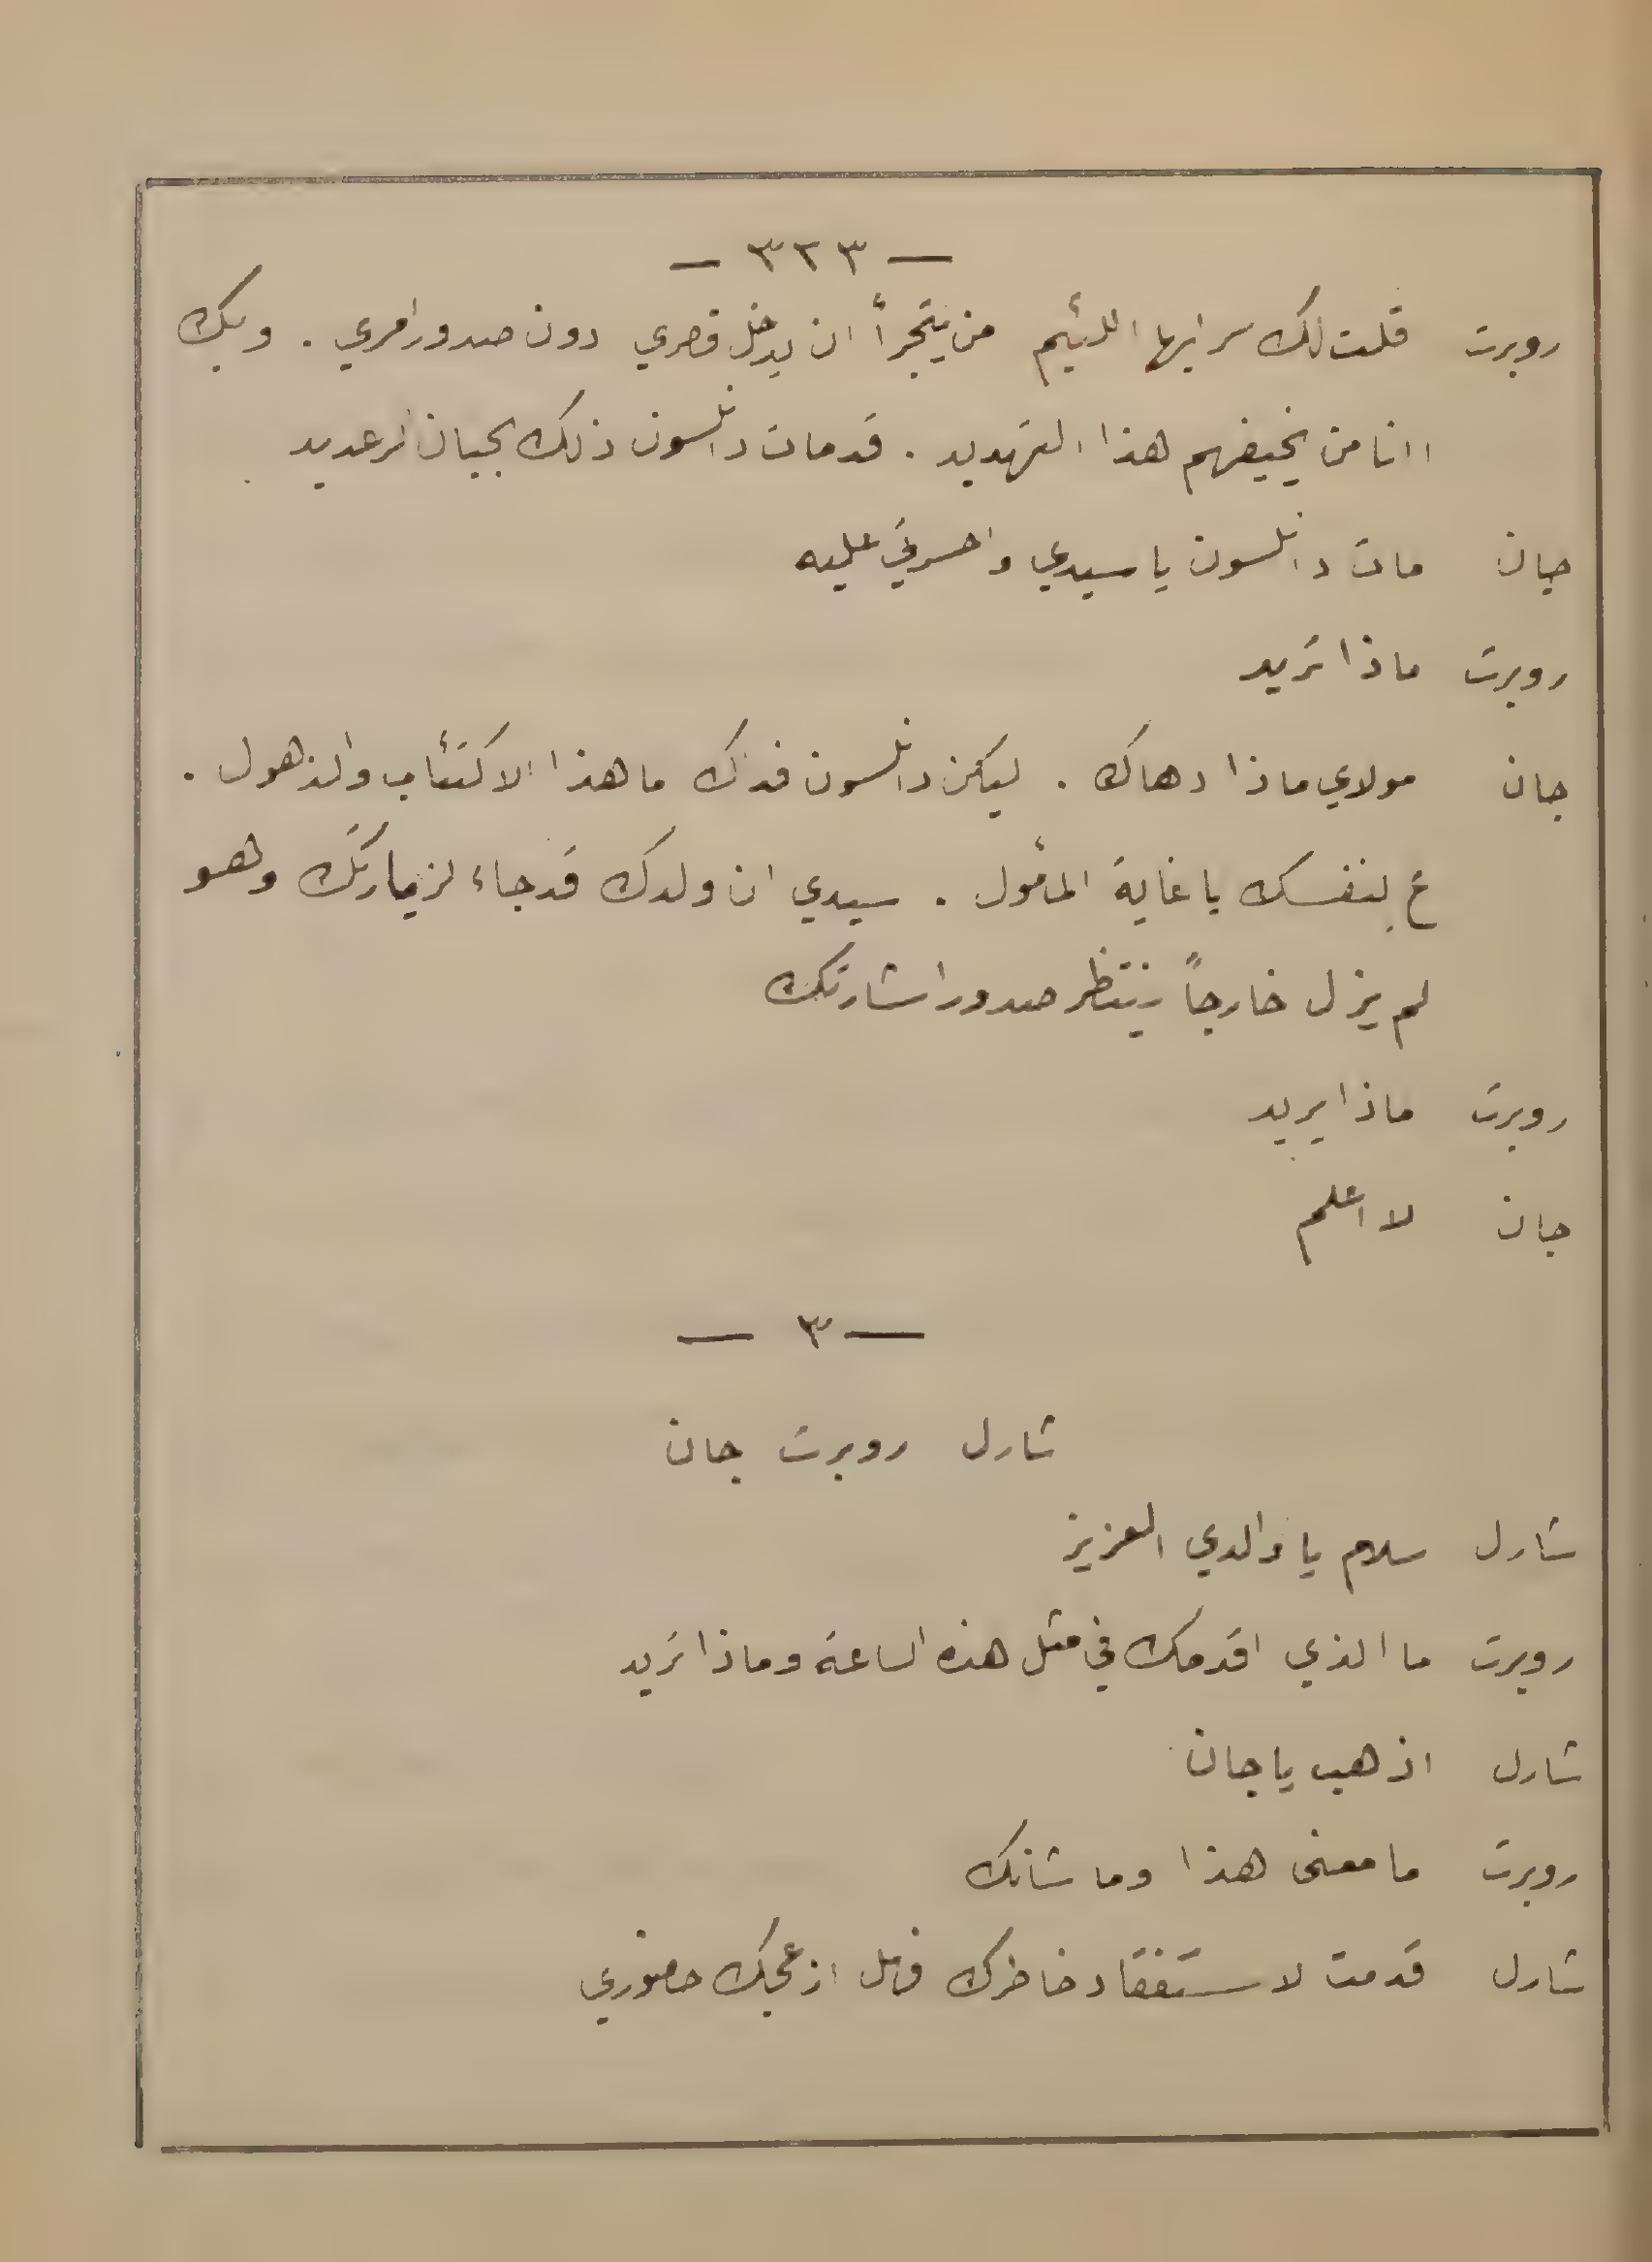 — ٣٢٣ —
روبرت قلت لك سر ايها اللئيم من يتجرأ ان يدخل قصري دون صدور امري . ويك
اانا من يخيفهم هذا التهديد . قد مات دانلسون ذلك الجبان الرعديد
جان مات دانلسون يا سيدي واحسرتي عليه
روبرت ماذا تريد
جان مولاي ماذا دهاك . ليكن دانلسون فداك ما هذا الاكتئاب والذهول .
عِ لنفسك يا غاية المأمول . سيدي ان ولدك قد جاء لزيارتك وهو
لم يزل خارجاً ينتظر صدور اشارتك
روبرت ماذا يريد
جان لا اعلم
— ٣ —
شارل روبرت جان
شارل سلام يا والدي العزيز
روبرت ما الذي اقدمك في مثل هذه الساعة وماذا تريد
شارل اذهب يا جان
روبرت ما معنى هذا وما شانك
شارل قدمت لاستفقاد خاطرك فهل ازعجك حضوري